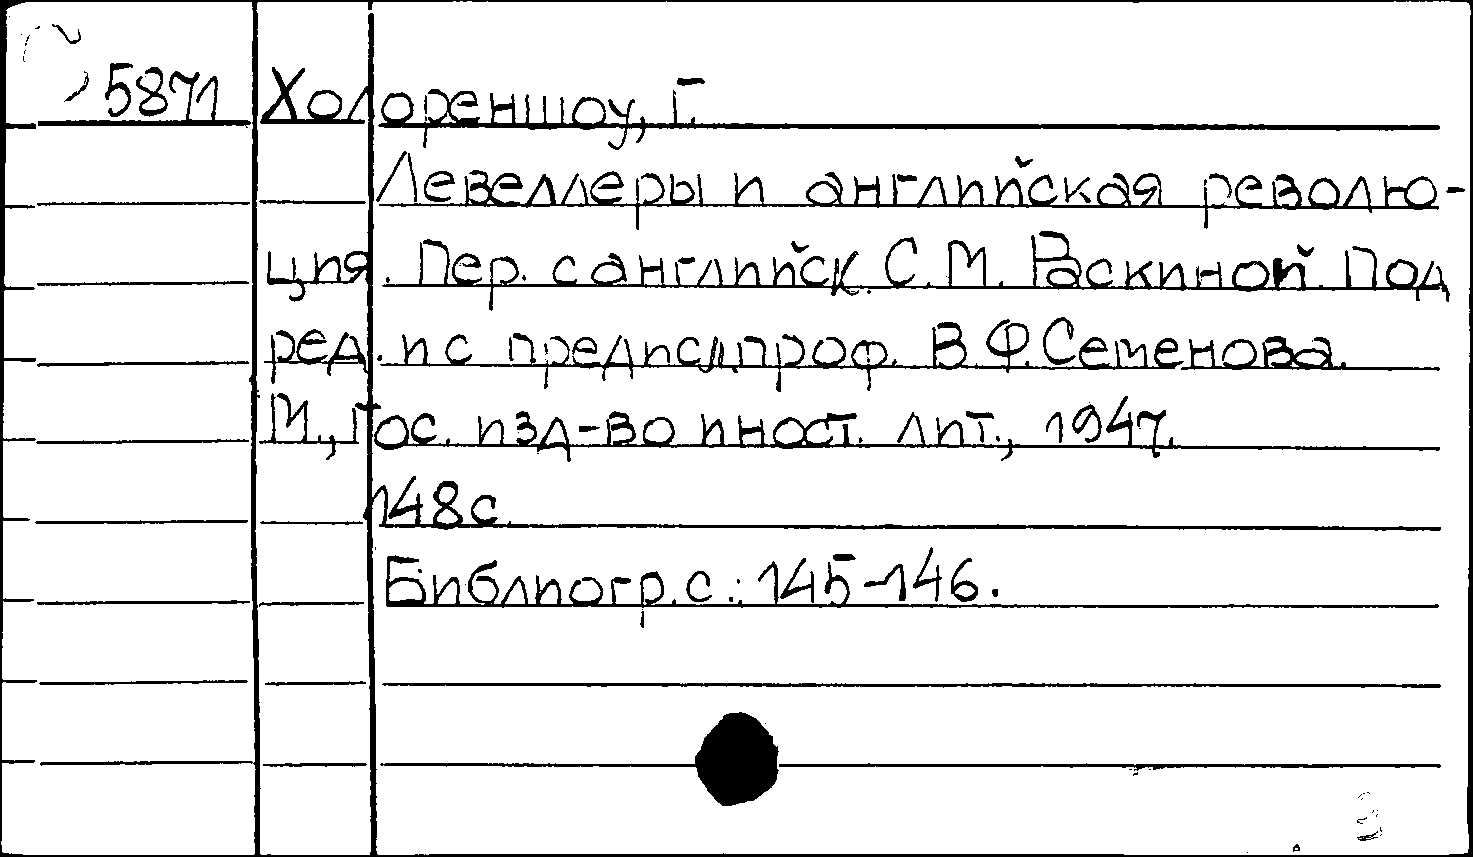 5871 Холореншоу, Г.
Левеллеры и английская револю-
ция. Пер. с английск. С. М. Раскиной. Под
ред. и с предисл. проф. В. Ф. Семенова.
М., Гос. изд-во иност. лит., 1947.
148 с.
Библиогр. с.: 145-146.